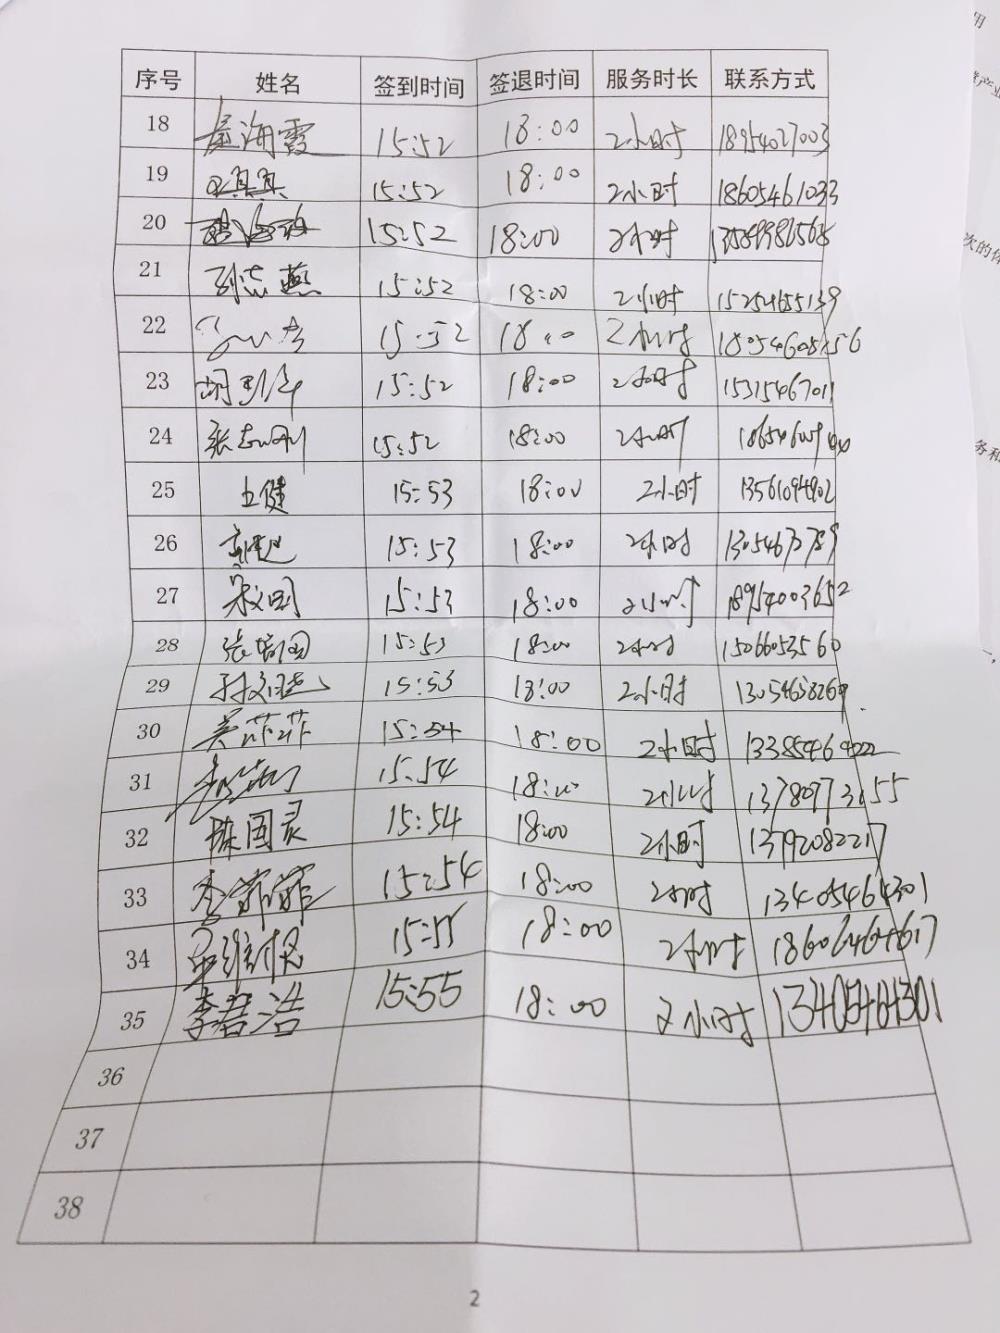 序号 姓名 签到时间 签退时间 服务时长 联系方式
18 海霞 15:52 18:00 2小时 18954027003
19 15:52 18:00 2小时 18605461033
20 15:52 18:00 2小时
21 孙志燕 15:52 18:00 2小时 15254655139
22 15:52 18:00 2小时
23 15:52 18:00 2小时 15315467011
24 张志刚 15:52 18:00 2小时
25 王健 15:53 18:00 2小时 13561094902
26 15:53 18:00 2小时
27 宋文国 15:53 18:00 2小时 18954003652
28 张培国 15:53 18:00 2小时 15066053560
29 孙文旭 15:53 18:00 2小时 13054658269
30 吴菲菲 15:54 18:00 2小时 13385464022
31 15:54 18:00 2小时 13780773155
32 陈国灵 15:54 18:00 2小时 13792082217
33 李菲菲 15:54 18:00 2小时 13405464301
34 15:55 18:00 2小时 18606464617
35 李君浩 15:55 18:00 2小时 13405464301
36
37
38
2